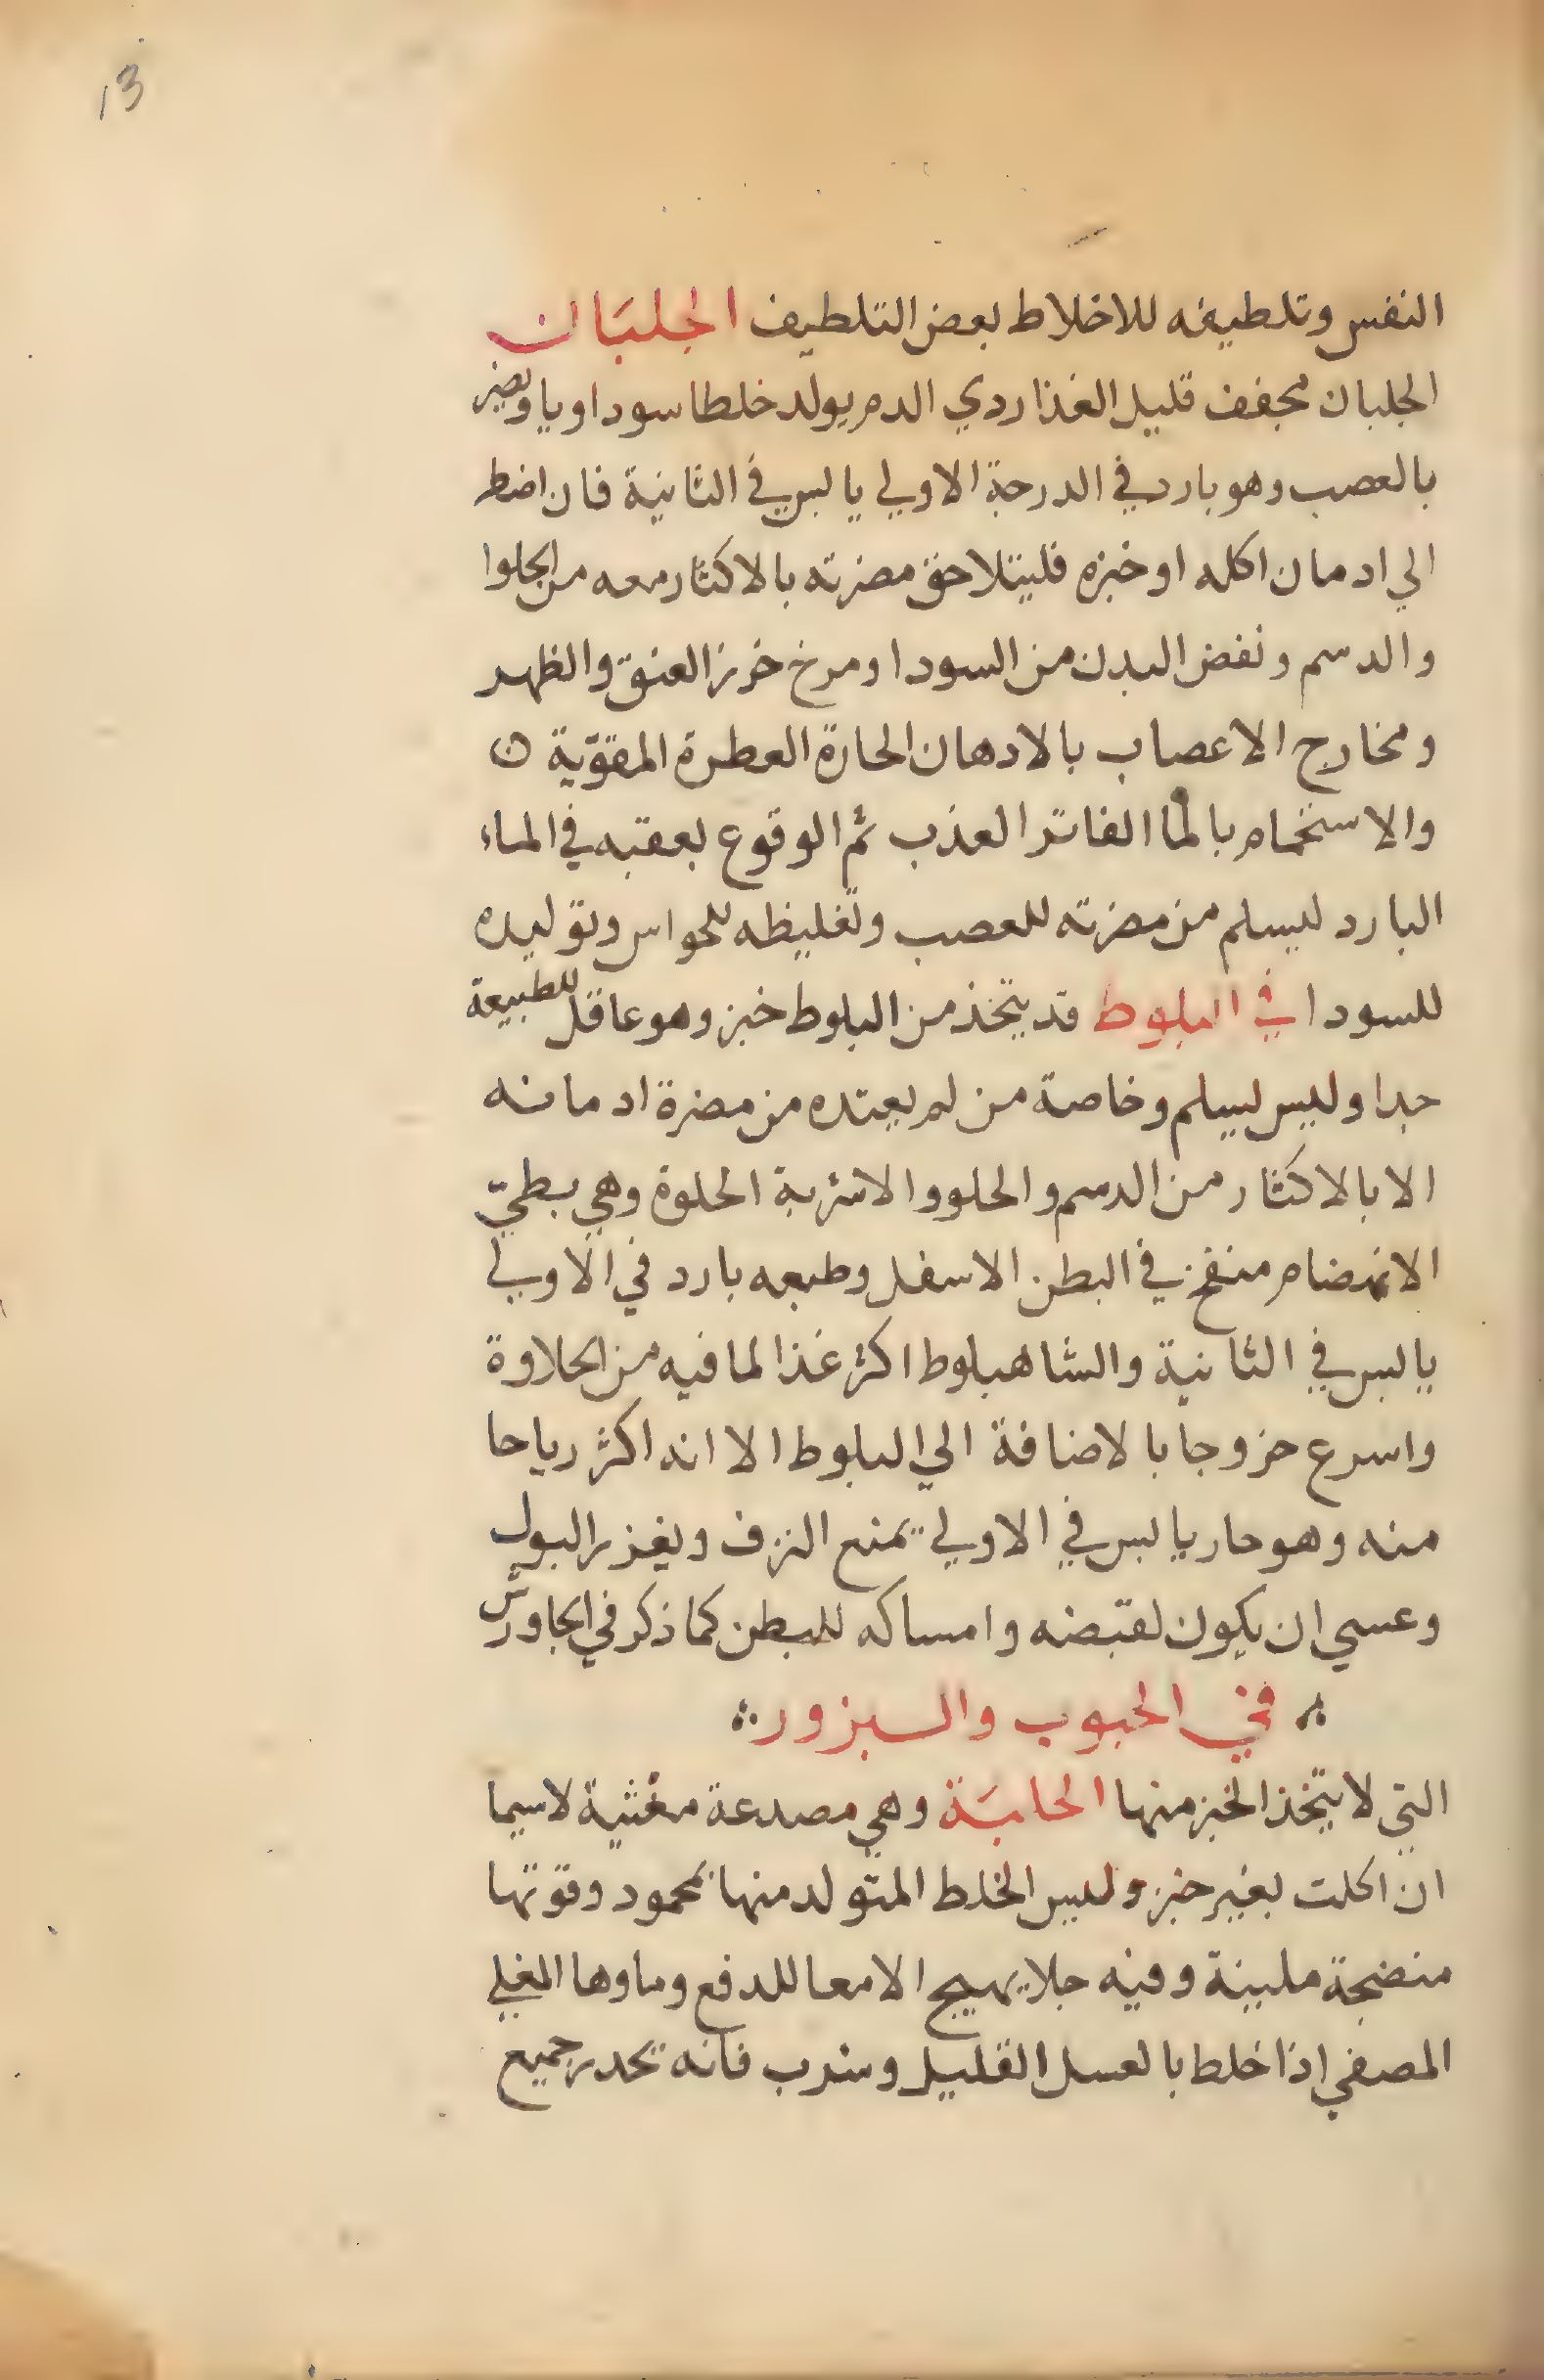 13
النفس وتلطيفه للاخلاط بعض التلطيف الجلبَان
الجلبان مجفف قليل الغذا ردي الدم يولد خلطا سوداويا ويضر
بالعصب وهو بارد في الدرجة الاولي يابس في الثانية فان اضطر
الي ادمان اكله او خبزه فليتلاحق مضرته بالاكثار معه من الحلوا
والدسم ونفض البدن من السودا ومرخ خرز العنق والظهر
ومخارج الاعصاب بالادهان الحارة العطرة المقوّية
والاستحمام بالما الفاتر العذب ثم الوقوع بعقبه في الماء
البارد ليسلم من مضرته للعصب وتغليظه للحواس وتوليده
للسودا في البلوط قد يتخذ من البلوط خبز وهو عاقل للطبيعة
جدا وليس يسلم وخاصة من لم يعتده من مضرة ادمانه
الا بالاكثار من الدسم والحلو والاشربة الحلوة وهي بطيّ
الانهضام منفخ في البطن الاسفل وطبعه بارد في الاولي
يابس في الثانية والشاهبلوط اكثر غذا لما فيه من الحلاوة
واسرع خروجا بالاضافة الي البلوط الا انه اكثر رياحا
منه وهو حار يابس في الاولي يمنع النزف ويغزر البول
وعسي ان يكون لقبضه وامساكه للبطن كما ذكر في الجاورش
في الحبوب والبزور
التي لا يتخذ الخبز منها الحلبَة وهي مصدعة مغثية لاسيما
ان اكلت بغير خبز وليس الخلط المتولد منها بمحمود وقوتها
منضجة ملينة وفيه جلا يهيج الامعا للدفع وماوها المغلي
المصفي اذا خلط بالعسل القليل وشرب فانه يحدر جميع